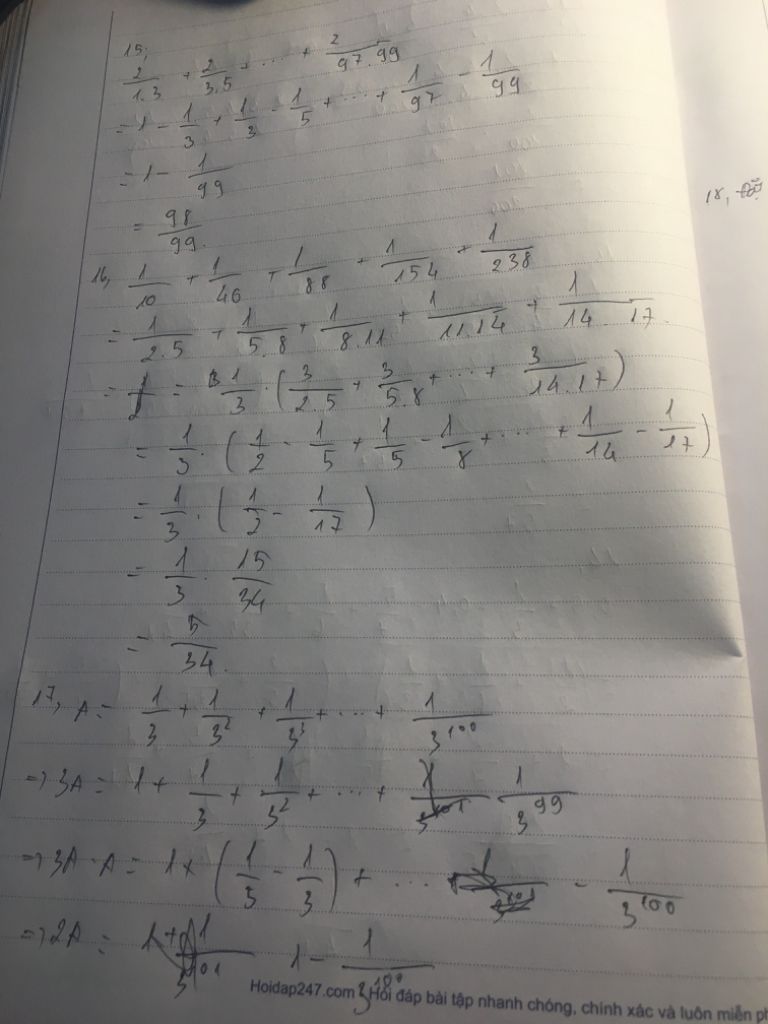 15;
2/1.3 + 2/3.5 + ... + 2/97.99
= 1 - 1/3 + 1/3 - 1/5 + ... + 1/97 - 1/99
= 1 - 1/99
= 98/99.
16, 1/10 + 1/40 + 1/88 + 1/154 + 1/238
= 1/2.5 + 1/5.8 + 1/8.11 + 1/11.14 + 1/14.17.
= = 1/3 . (3/2.5 + 3/5.8 + ... + 3/14.17)
= 1/3 . (1/2 - 1/5 + 1/5 - 1/8 + ... + 1/14 - 1/17)
= 1/3 . (1/2 - 1/17)
= 1/3 . 15/34
= 5/34.
17, A = 1/3 + 1/3² + 1/3³ + ... + 1/3¹⁰⁰
=> 3A = 1 + 1/3 + 1/3² + ... + 1/3⁹⁹
=> 3A - A = 1 + (1/3 - 1/3) + ... - 1/3¹⁰⁰
=> 2A = 1 - 1/3¹⁰⁰
18,
Hoidap247.com - Hỏi đáp bài tập nhanh chóng, chính xác và luôn miễn